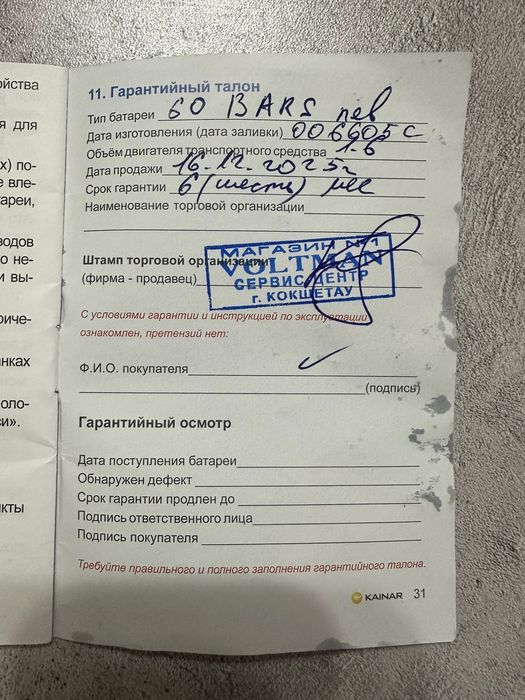 ойства
я для
х) по-
е вле-
ареи,
водов
о не-
и вы-
риче-
нках
оло-
си».
нкты
11. Гарантийный талон
Тип батареи 60 BARS лев
Дата изготовления (дата заливки) 006605с
Объём двигателя транспортного средства 1.6
Дата продажи 16.12.2025г
Срок гарантии 6 (шесть) мес
Наименование торговой организации
Штамп торговой организации
(фирма - продавец)
МАГАЗИН №1
VOLTMAN
СЕРВИС ЦЕНТР
г. КОКШЕТАУ
С условиями гарантии и инструкцией по эксплуатации
ознакомлен, претензий нет:
Ф.И.О. покупателя
(подпись)
Гарантийный осмотр
Дата поступления батареи
Обнаружен дефект
Срок гарантии продлен до
Подпись ответственного лица
Подпись покупателя
Требуйте правильного и полного заполнения гарантийного талона.
KAINAR 31